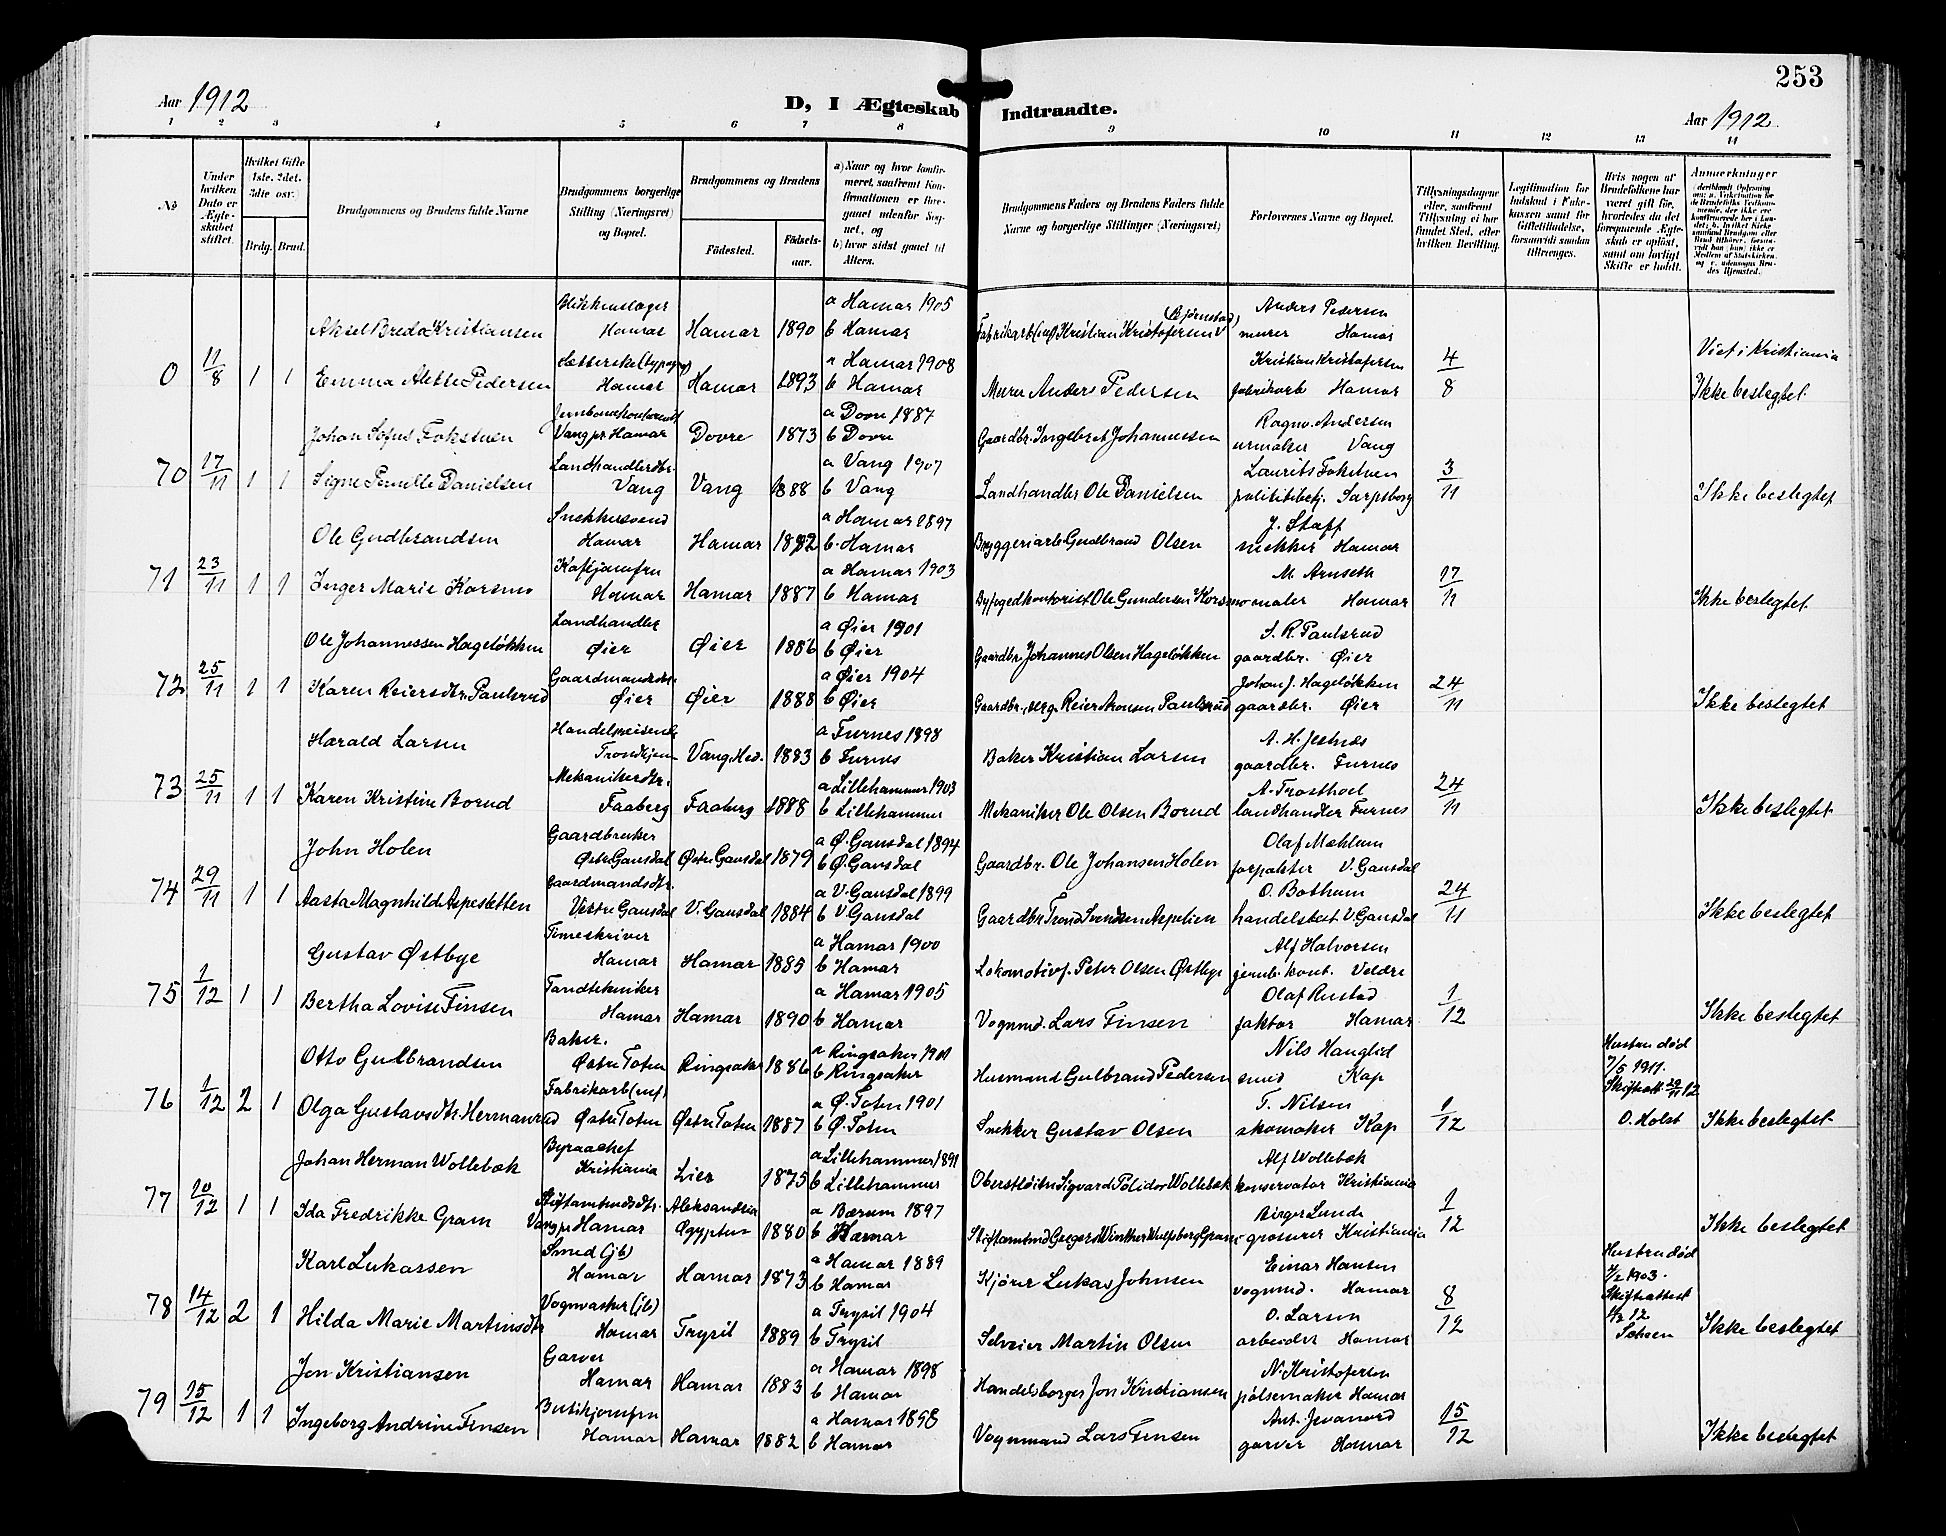 253
Aar 1912
D, I Ægteskab Indtraadte.
Aar 1912
1 2 3 4 5 6 7 8 9 10 11 12 13 14
No
Under hvilken Dato er Ægteskabet stiftet.
Hvilket Gifte 1ste. 2det. 3die osv.)
Brdg. Brud.
Brudgommens og Brudens fulde Navne
Brudgommens borgerlige Stilling (Næringsvei) og Bopæl.
Brudgommens og Brudens
Fødested.
Fødselsaar.
a) Naar og hvor konfirmeret, saafremt Konfirmationen er foregaaet udenfor Sognet, og
b) hvor sidst gaaet til Alters.
Brudgommens Faders og Brudens Faders fulde Navne og borgerlige Stillinger (Næringsvei)
Forlovernes Navne og Bopæl.
Tillysningsdagene eller, saafremt Tillysning ei har fundet Sted, efter hvilken Bevilling.
Legitimation for Indskud i Enkekassen samt for Giftetilladelse, forsaavidt saadan tiltrænges.
Hvis nogen af Brudefolkene har været gift før, hvorledes da det foregaaende Ægteskab er opløst, samt om lovligt Skifte er holdt.
Anmerkninger
Aksel Breda Kristiansen Blikkenslager Hamar Hamar 1890 a Hamar 1905 b Hamar Fabrikarb (inf) Kristian Kristofersen (Bjørnstad) Anders Pedersen murer Hamar
0 11/8 1 1 Emma Alette Pedersen Sætterske (typogr) Hamar Hamar 1893 a Hamar 1908 b Hamar Murer Anders Pedersen Kristian Kristofersen fabrikarb Hamar 4/8 Viet i Kristiania Ikke beslegtet.
Johan Sofus Fokstuen Vang pr Hamar Dovre 1873 a Dovre 1887 b Dovre Gaardbr. Ingebret Johannessen Ragnv. Andersen urmaker Vang
70 17/11 1 1 Signe Pernille Danielsen Landhandlerdtr. Vang Vang 1888 a Vang 1907 b Vang Landhandler Ole Danielsen Laurits Fokstuen politibetj. Sarpsborg 3/11 Ikke beslegtet
Ole Gudbrandsen Snekkersvend Hamar Hamar 1882 a Hamar 1897 b Hamar Bryggeriarb Gudbrand Olsen J. Staff snekker Hamar
71 23/11 1 1 Inger Marie Korsmo Kafejomfru Hamar Hamar 1887 a Hamar 1903 b Hamar Byfogedkontorist Ole Gundersen Korsmo M. Arnseth maler Hamar 17/11 Ikke beslegtet.
Ole Johannessen Hageløkken Landhandler Øier Øier 1886 a Øier 1901 b Øier Gaardbr. Johannes Olsen Hageløkken S. R. Paulsrud gaardbr. Øier
72 25/11 1 1 Karen Reiersdtr. Paulsrud Gaardmandsdtr. Øier Øier 1888 a Øier 1904 b Øier Gaardbr., Reier Paulsrud Johan J. Hageløkken gaardbr. Øier 24/11 Ikke beslegtet
Harald Larsen Handelsreisende Trondhjem Vang, Hed. 1883 a Furnes 1898 b Furnes Baker Kristian Larsen A. H. Jesnæs gaardbr. Furnes
73 25/11 1 1 Karen Kristine Borud Mekanikerdtr. Faaberg Faaberg 1888 a Lillehammer 1903 b Lillehammer Mekaniker Ole Olsen Borud A. Trosthoel landhandler Furnes 24/11 Ikke beslegtet
John Holen Gaardbruker Østre Gausdal Østre Gausdal 1879 a Ø. Gausdal 1894 b Ø. Gausdal Gaardbr. Ole Johansen Holen Olaf Mæhlum forpakter V. Gausdal
74 29/11 1 1 Aasta Magnhild Aspesletten Gaardmandsdtr. Vestre Gausdal V. Gausdal 1884 a V. Gausdal 1899 b V Gausdal Gaardbr Trond Svendsen O. Bothum handelsbest V. Gausdal 24/11 Ikke beslegtet
Gustav Østbye Timeskriver Hamar Hamar 1885 a Hamar 1900 b Hamar Lokomotivf. Peter Olsen Østbye Alf Halvorsen jernb. kont. Veldre
75 1/12 1 1 Bertha Lovise Finsen Tandtekniker Hamar Hamar 1890 a Hamar 1905 b Hamar Vognmd. Lars Finsen Olaf Rustad faktor Hamar 1/12 Ikke beslegtet
Otto Gulbrandsen Baker. Østre Toten Ringsaker 1886 a Ringsaker 1901 b Ringsaker Husmand Gulbrand Pedersen Nils Hauglid smid Kap Hustru død 7/5 1911. Skifteatt. 29/11 12
76 1/12 2 1 Olga Gustavsdtr. Hermanrud Fabrikarb (inf) Østre Toten Østre Toten 1887 a Ø. Toten 1901 b Ø. Toten Snekker Gustav Olsen T. Nilsen skomaker Kap 1/12 O. Holst Ikke beslegtet
Johan Herman Wollebæk Byraachef Kristiania Lier 1875 a Lillehammer 1891 b Lillehammer Oberstløitn Sigvard Polidor Wollebæk Alf Wollebæk konservator Kristiania
77 10/12 1 1 Ida Fredrikke Gram Stiftamtmdsdtr. Vang pr Hamar Aleksandria Ægypten 1880 a Bærum 1897 b Hamar Stiftamtmd Gregers Winther Wulfsberg Gram Birger Lunde grosserer Kristiania 1/12 Ikke beslegtet
Karl Lukassen Smed (jb) Hamar Hamar 1873 a Hamar 1889 b Hamar Kjører Lukas Johnsen Einar Hansen vognmd. Hamar Hustru død 1/2 1903. Skifteattest
78 14/12 2 1 Hilda Marie Martinsdtr Vognvasker (jb) Hamar Trysil 1889 a Trysil 1904 b Trysil Selveier Martin Olsen O. Larsen arbeider Hamar 8/12 Ikke beslegtet
Jon Kristiansen Garver Hamar Hamar 1883 a Hamar 1898 b Hamar Handelsborger Jon Kristiansen N. Kristofersen pølsemaker Hamar
79 15/12 1 1 Ingeborg Andrine Finsen Butikjomfru Hamar Hamar 1882 a Hamar 1898 b Hamar Vognmand Lars Finsen Ant. Jevanord garver Hamar 15/12 Ikke beslegtet